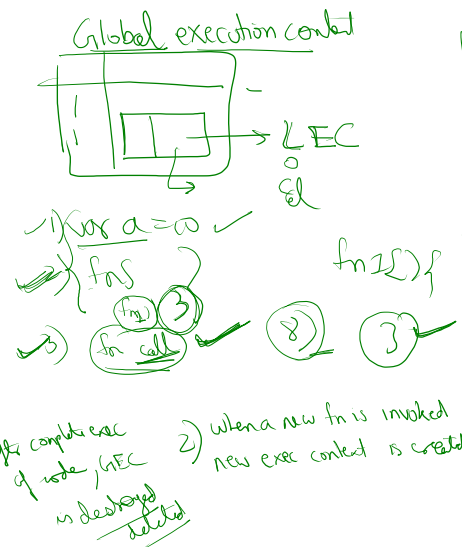 Global execution context
LEC
o
1) var a = 10
2) fns
fn1()
3
fn1() {
3) fn call
8
3
After complete exec
of code, GEC
is destroyed
deleted
2) when a new fn is invoked
new exec context is created